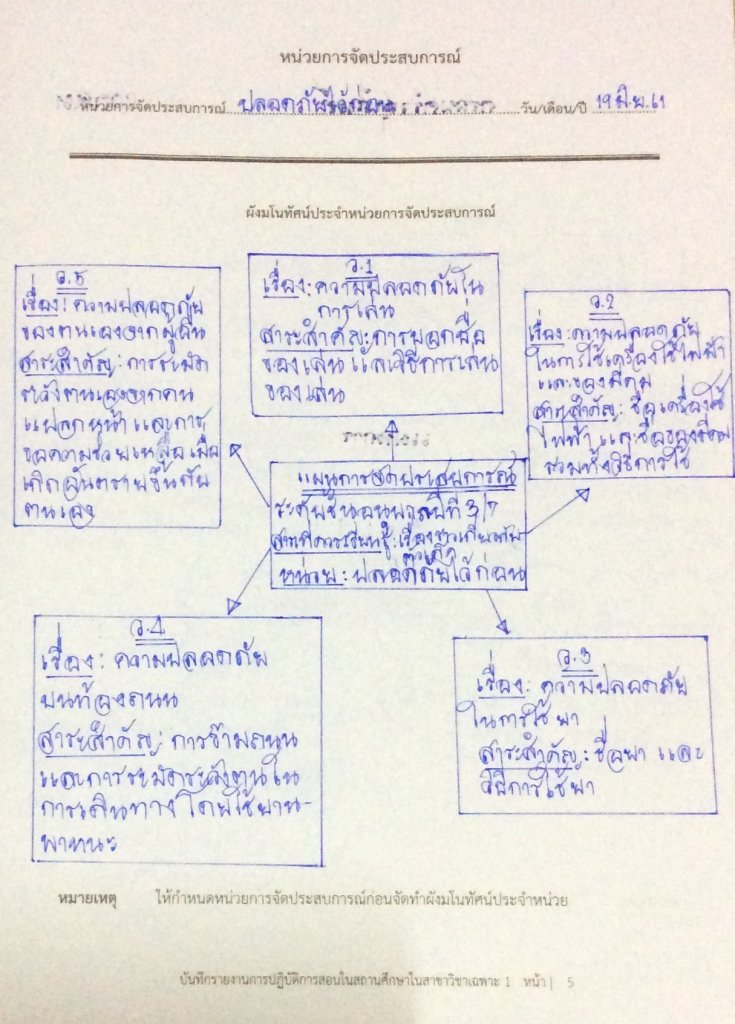 หน่วยการจัดประสบการณ์
หน่วยการจัดประสบการณ์ ปลอดภัยไว้ก่อน วัน/เดือน/ปี 19 มิ.ย. 61
ผังมโนทัศน์ประจำหน่วยการจัดประสบการณ์
ว.5
เรื่อง: ความปลอดภัย
ของตนเองจากผู้อื่น
สาระสำคัญ: การระมัด
ระวังตนเองจากคน
แปลกหน้า และการ
ขอความช่วยเหลือ เมื่อ
เกิดอันตรายขึ้นกับ
ตนเอง
ว.1
เรื่อง: ความปลอดภัยใน
การเล่น
สาระสำคัญ: การบอกชื่อ
ของเล่น และวิธีการเล่น
ของเล่น
ว.2
เรื่อง: ความปลอดภัย
ในการใช้เครื่องใช้ไฟฟ้า
และของมีคม
สาระสำคัญ: ชื่อเครื่องใช้
ไฟฟ้า และชื่อของมีคม
รวมทั้งวิธีการใช้
แผนการจัดประสบการณ์
ระดับชั้นอนุบาลปีที่ 3/7
สาระที่ควรเรียนรู้: เรื่องราวเกี่ยวกับ
ตัวเด็ก
หน่วย: ปลอดภัยไว้ก่อน
ว.4
เรื่อง: ความปลอดภัย
บนท้องถนน
สาระสำคัญ: การข้ามถนน
และการระมัดระวังตนใน
การเดินทางโดยใช้ยาน-
พาหนะ
ว.3
เรื่อง: ความปลอดภัย
ในการใช้ยา
สาระสำคัญ: ชื่อยา และ
วิธีการใช้ยา
หมายเหตุ ให้กำหนดหน่วยการจัดประสบการณ์ก่อนจัดทำผังมโนทัศน์ประจำหน่วย
บันทึกรายงานการปฏิบัติการสอนในสถานศึกษาในสาขาวิชาเฉพาะ 1 หน้า | 5